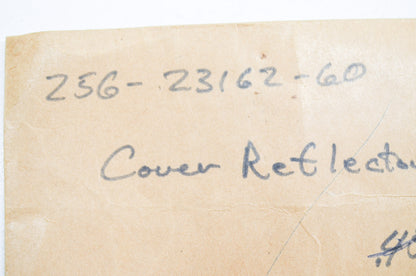 256-23162-60
Cover Reflector